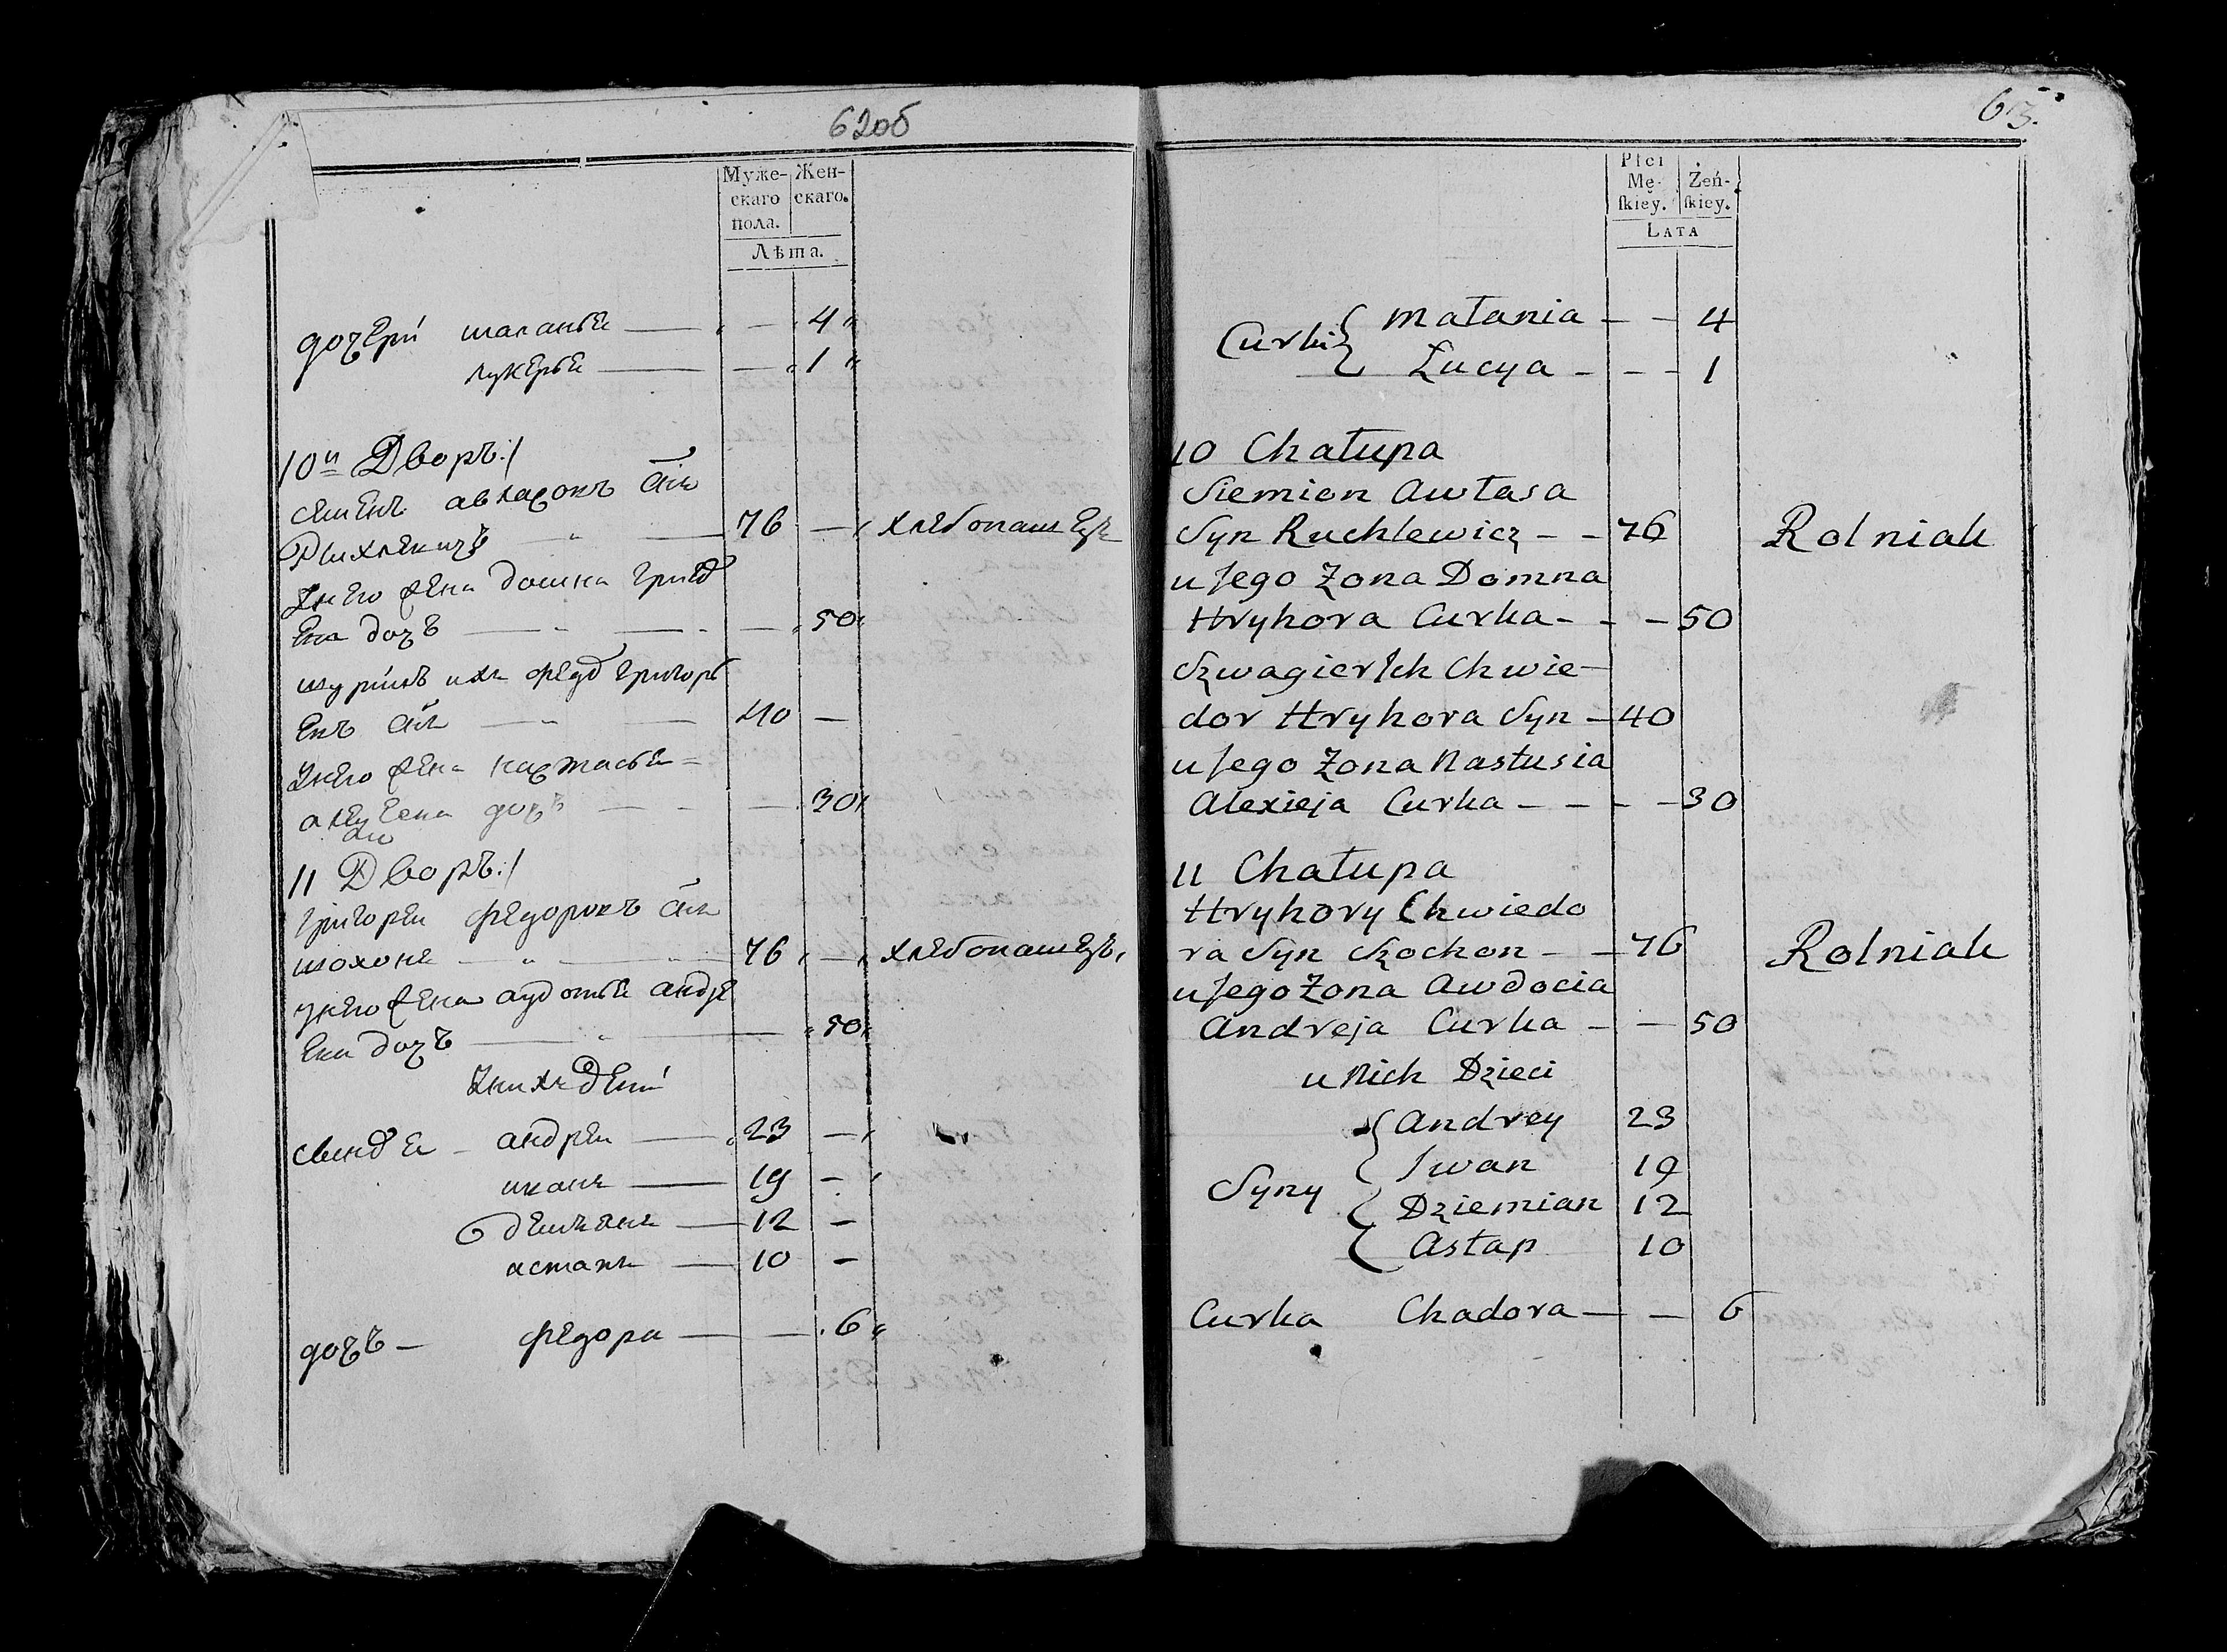 62об
Муже- Жен-
скаго скаго.
пола.
Лѣта.
дочери маланья — 4
лукерья — 1
10й Дворъ:/
семенъ авласовъ сн҃ъ
Рыхлевичъ — 76 — хлебопашецъ
У него жена домна григо
ева дочъ — 50
шуринъ ихъ федо григорь
евъ сн҃ъ — 40 —
У него жена настасья
дочъ — 30
11 Дворъ:/
григореи федоровъ сн҃ъ
шохонъ — 76 — хлебопашецъ,
у него жена авдотья андре
ева дочъ — 50
У нихъ дети
андреи — 23 —
иванъ — 19 —
демьянъ — 12 —
астапъ — 10 —
дочъ — федора — 6
63.
Płci
Mę- Żeń-
ſkiey. ſkiey.
LATA
Curki { Małania - - 4
Łucya - - - 1
10 Chałupa
Siemion Awłasa
Syn Ruchlewicz - - 76 Rolnik
u Jego Żona Domna
Hryhora Curka - - - 50
Szwagier Ich Chwie-
dor Hryhora Syn - 40
u Jego Żona Nastusia
Alexieja Curka - - - - 30
11 Chałupa
Hryhory Chwiedo
ra Syn Szochon - - 76 Rolnik
u Jego Żona Awdocia
Andreja Curka - - 50
u Nich Dzieci
{ Andrey 23
Iwan 19
Syny { Dziemian 12
Astap 10
Curka Chadora - - 6